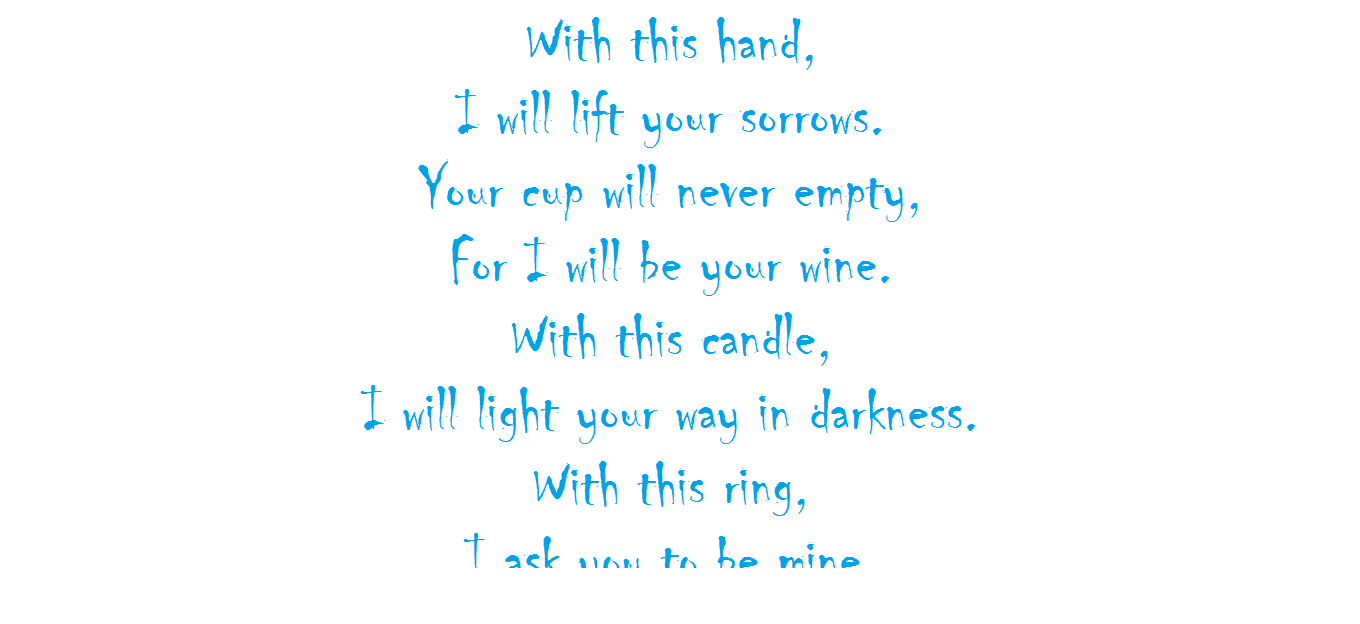 With this hand,
I will lift your sorrows.
Your cup will never empty,
For I will be your wine.
With this candle,
I will light your way in darkness.
With this ring,
I ask you to be mine